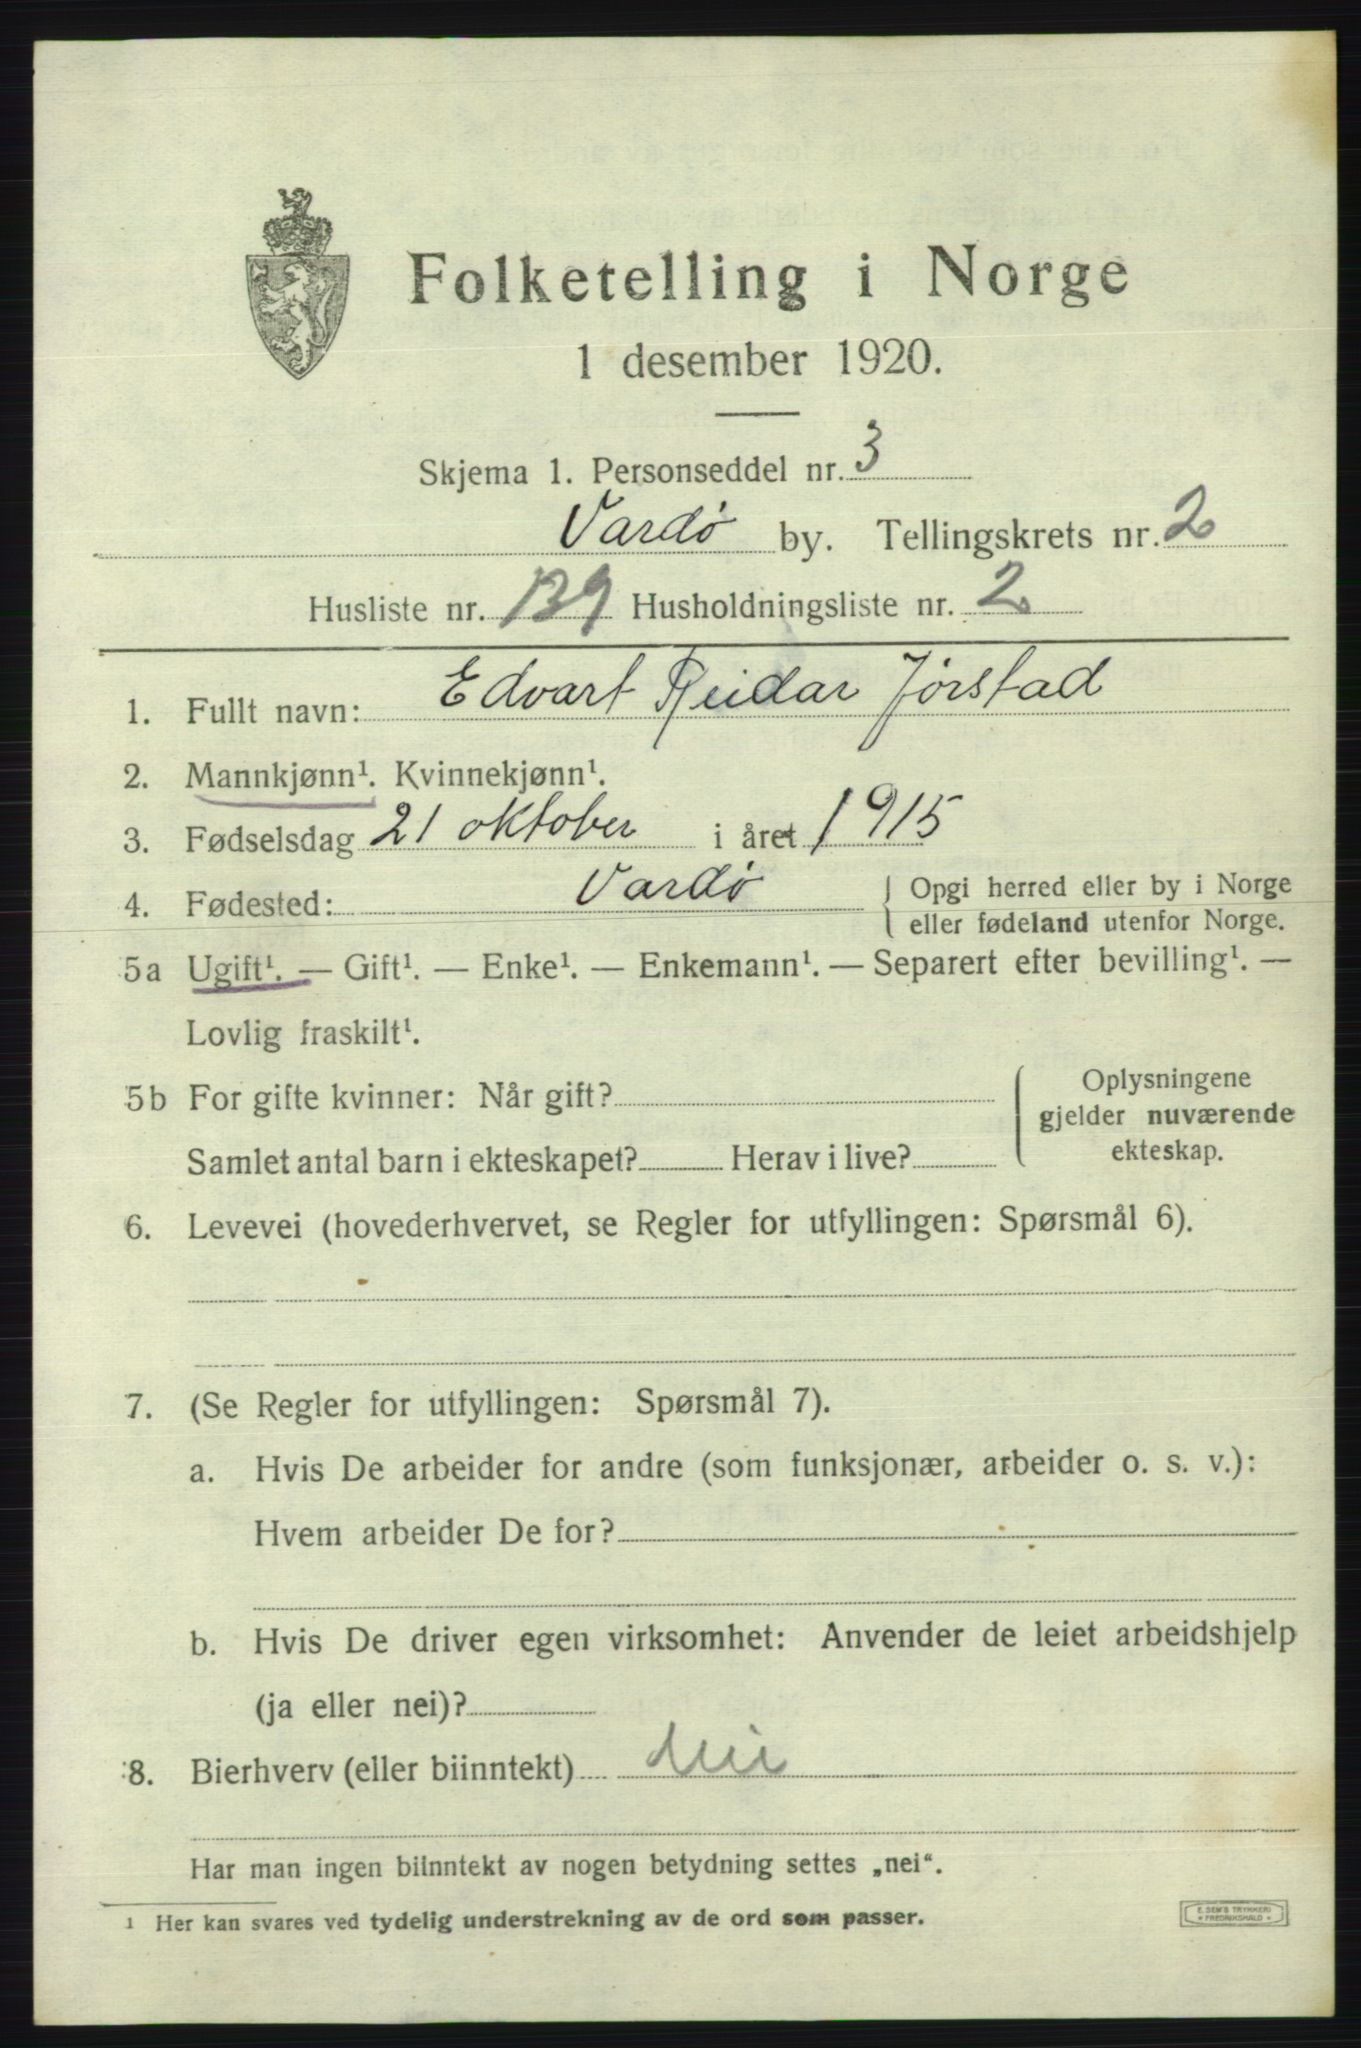 Folketelling i Norge
1 desember 1920.
Skjema 1. Personseddel nr. 3
Vardø by. Tellingskrets nr. 2
Husliste nr. 139 Husholdningsliste nr. 2
1. Fullt navn: Edvart Reidar Jørstad
2. Mannkjønn¹. Kvinnekjønn¹.
3. Fødselsdag 21 oktober i året 1915
4. Fødested: Vardø { Opgi herred eller by i Norge
eller fødeland utenfor Norge.
5a Ugift¹. — Gift¹. — Enke¹. — Enkemann¹. — Separert efter bevilling¹. —
Lovlig fraskilt¹.
5b For gifte kvinner: Når gift?
Samlet antal barn i ekteskapet? Herav i live?
Oplysningene
gjelder nuværende
ekteskap.
6. Levevei (hovederhvervet, se Regler for utfyllingen: Spørsmål 6).
7. (Se Regler for utfyllingen: Spørsmål 7).
a. Hvis De arbeider for andre (som funksjonær, arbeider o. s. v.):
Hvem arbeider De for?
b. Hvis De driver egen virksomhet: Anvender de leiet arbeidshjelp
(ja eller nei)?
8. Bierhverv (eller biinntekt) nei
Har man ingen biinntekt av nogen betydning settes „nei“.
1 Her kan svares ved tydelig understrekning av de ord som passer.
E. SEM'S TRYKKERI
* FREDRIKSHALD *